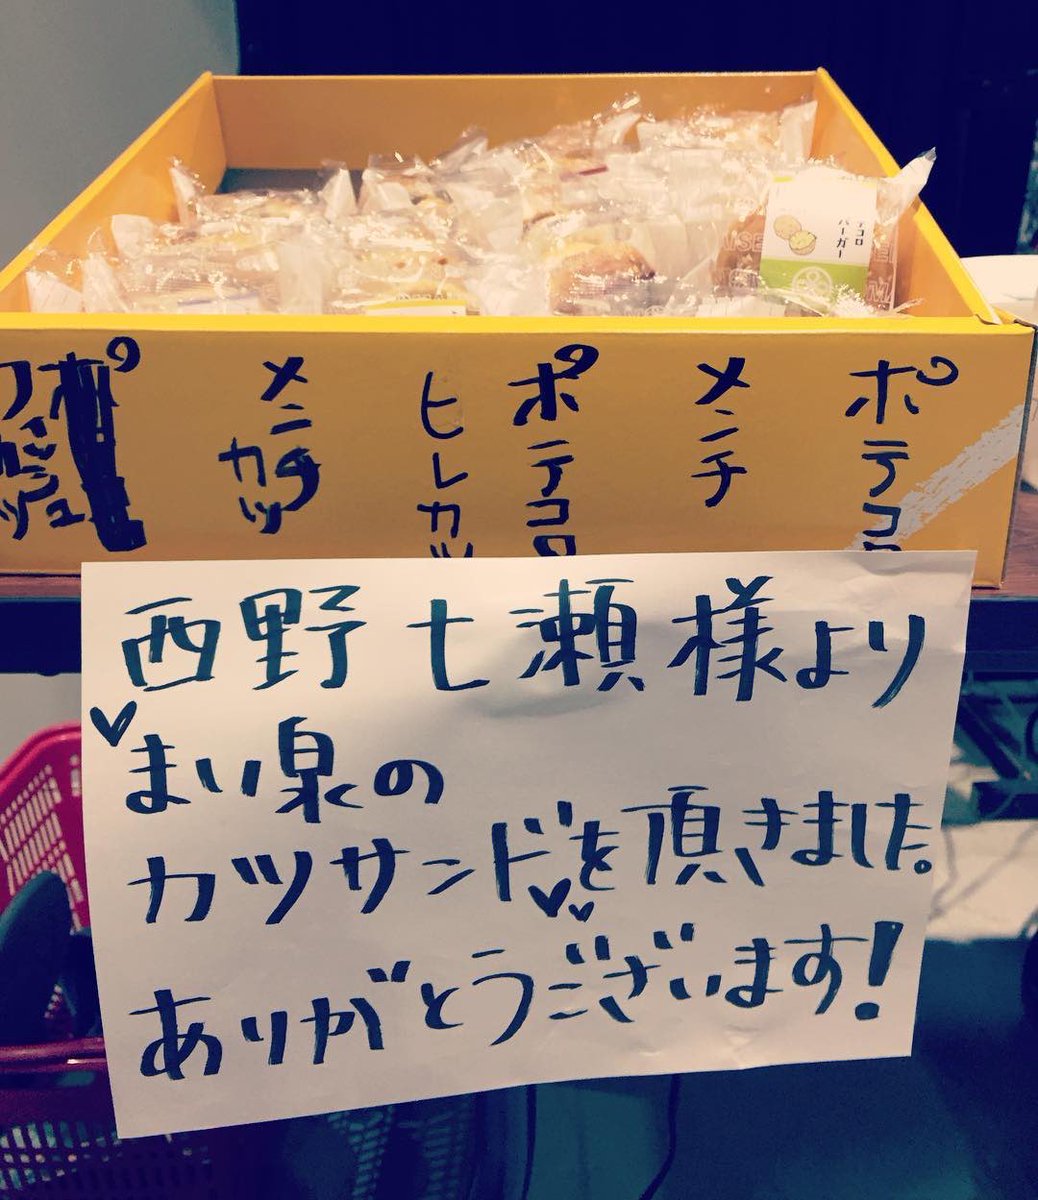 テコロ
バーガー
メンチ
カツ
ヒレカツ
ポテコロ
メンチ
ポテコロ
西野七瀬様より
まい泉の
カツサンドを頂きました。
ありがとうございます!